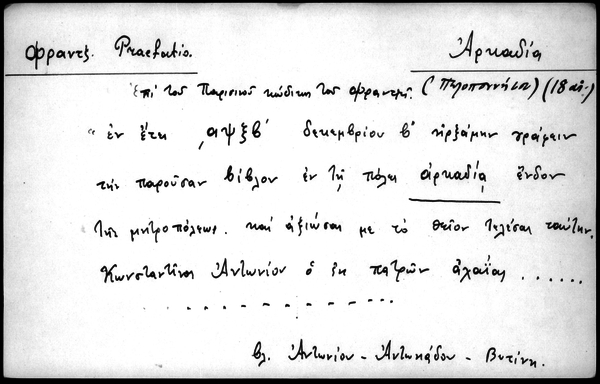 Φραντζ. Praefatio. Ἀρκαδία
Ἐπὶ τοῦ Παρισινοῦ κώδικος τοῦ Φραντζῆ. (Πελοποννήσου) (18 αἰ.)
"ἐν ἔτει ͵αψξβʹ δεκεμβρίου βʹ ἠρξάμην γράφειν
τὴν παροῦσαν βίβλον ἐν τῇ πόλει ἀρκαδίᾳ ἔνδον
τῆς μητροπόλεως. καὶ ἀξιῶσαι με τὸ θεῖον τελέσαι ταύτην.
Κωνσταντῖνος Ἀντωνίου ὁ ἐκ πατρῶν ἀχαΐας ......
. . . . . . . . . . . . .
βλ. Ἀντωνίου - Ἀντωνιάδου - Βυτίνη.